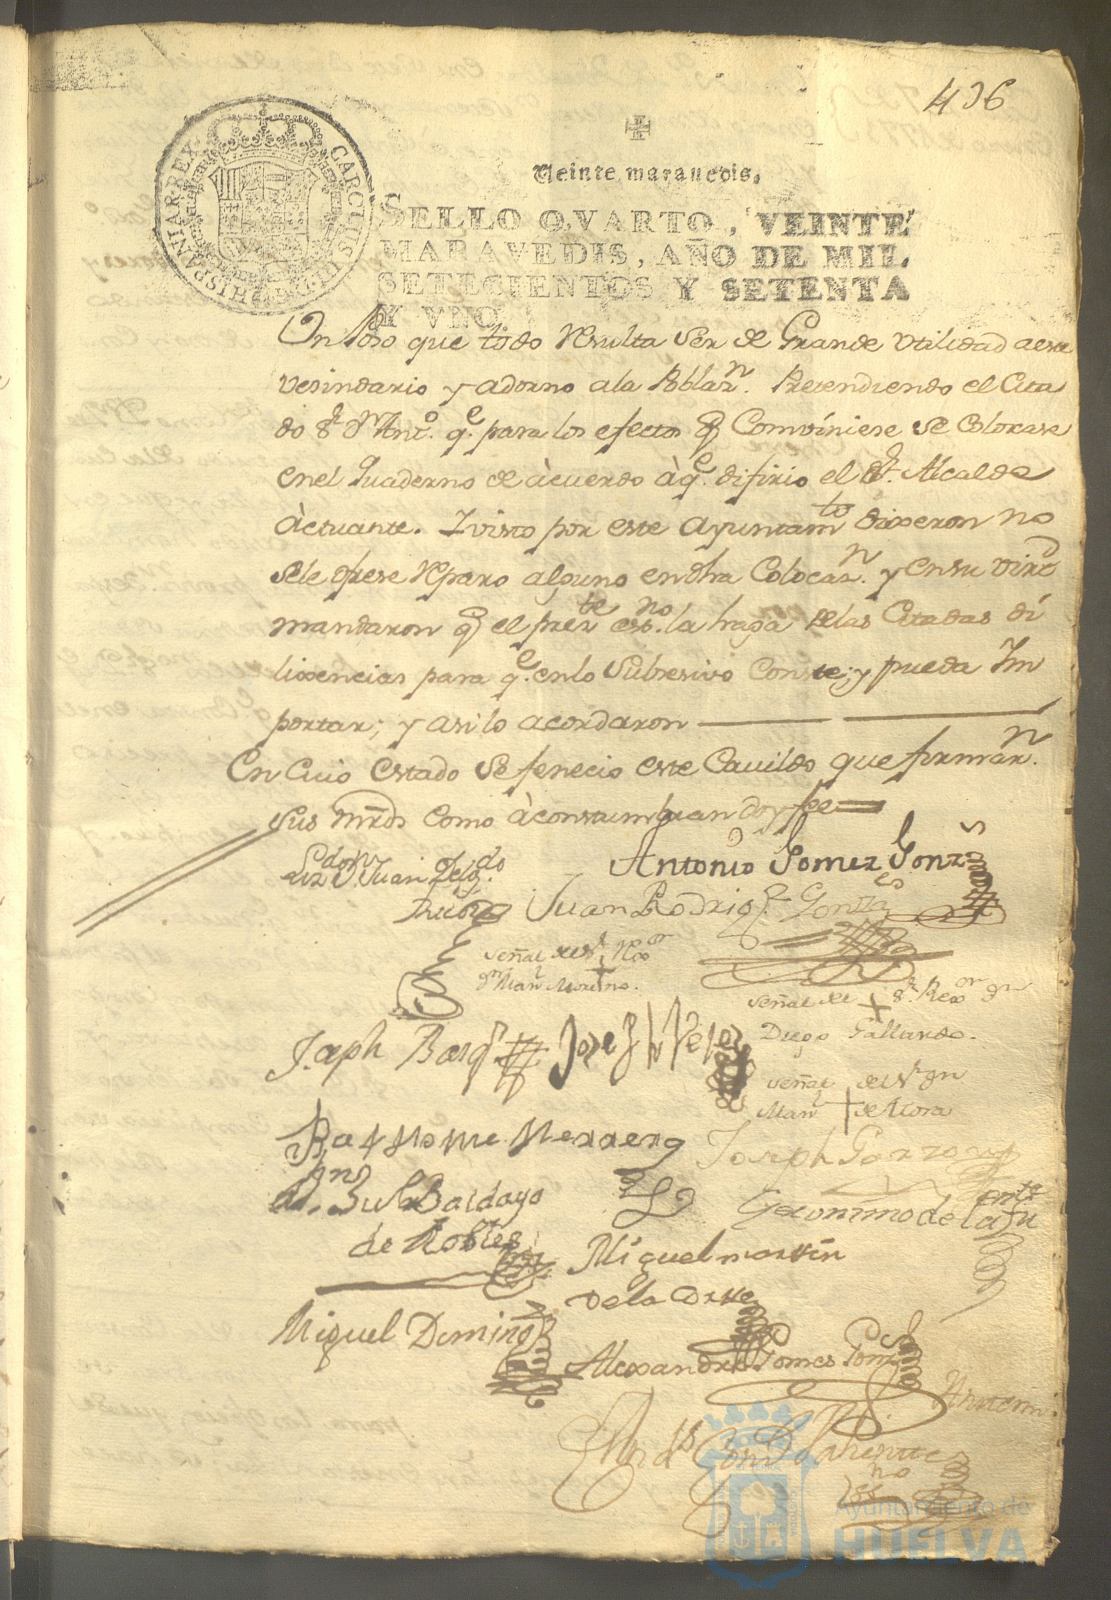 406
Veinte marauedis.
SELLO QVARTO, VEINTE
MARAVEDIS, AÑO DE MIL
SETECIENTOS Y SETENTA
Y VNO.
CAROLUS III D G HISPANIAR REX
que todo resulta ser de Grande vtilidad a este
vesindario y adorno a la Poblazn. Pretendiendo el Cita
do Sr. Dn Anto. qe. para los efectos q Comviniese se Colocase
en el Quaderno de àcuerdo à qe. difirio el Sr. Alcalde
Actuante. I visto por este Ayuntamto dixeron no
sele ofrese reparo alguno en dha Colocazn. y en su virtd
mandaron q el preste esno. la haga de las Citadas di
lixencias para qe. en lo Subcesivo Conste; y pueda Im
portar; y asi lo acordaron
En Cuio estado se fenecio este Cauildo que firmarn.
sus mrds como àcostumbran doy fee
Lizdo Dn Juan
Antonio Gomez Gonzs
Juan Rodrigz
señal del Sr. Rexor
dn Manl Moreno.
señal del Sr. Rexor dn
Diego Gallardo.
Joseph
señal del Sr dn
Manl de Mora
Bartolome Herrero
Joseph Garzon
Baldayo
de Robles
Geronimo de la fuente
Miguel martin
de la
Miguel Doming
Alexandro Gomes Gonz
Ante mi
Ayuntamiento de
HUELVA